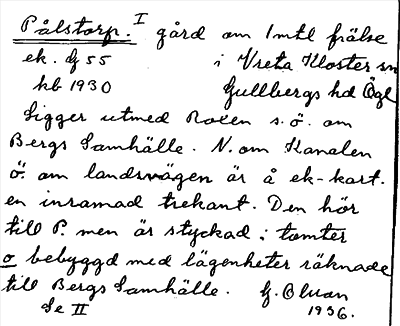 Pålstorp. I gård om 1 mtl frälse
ek. G 55 i Vreta Kloster sn
hb 1930 Gullbergs hd Ögl
Ligger utmed Roxen s.ö. om
Bergs Samhälle. N. om Kanalen
ö. om landsvägen är å ek-kart.
en inramad trekant. Den hör
till P. men är styckad i tomter
o bebyggd med lägenheter räknade
till Bergs Samhälle. G. Olson
Se II 1936.